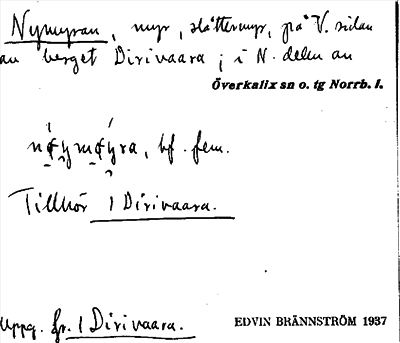 Nymyran, myr, slåttermyr, på V. sidan
av berget Dirivaara ; i N. delen av
Överkalix sn o. tg Norrb. l.
bf. fem.
Tillhör 1 Dirivaara.
Uppg. fr. 1 Dirivaara.
EDVIN BRÄNNSTRÖM 1937